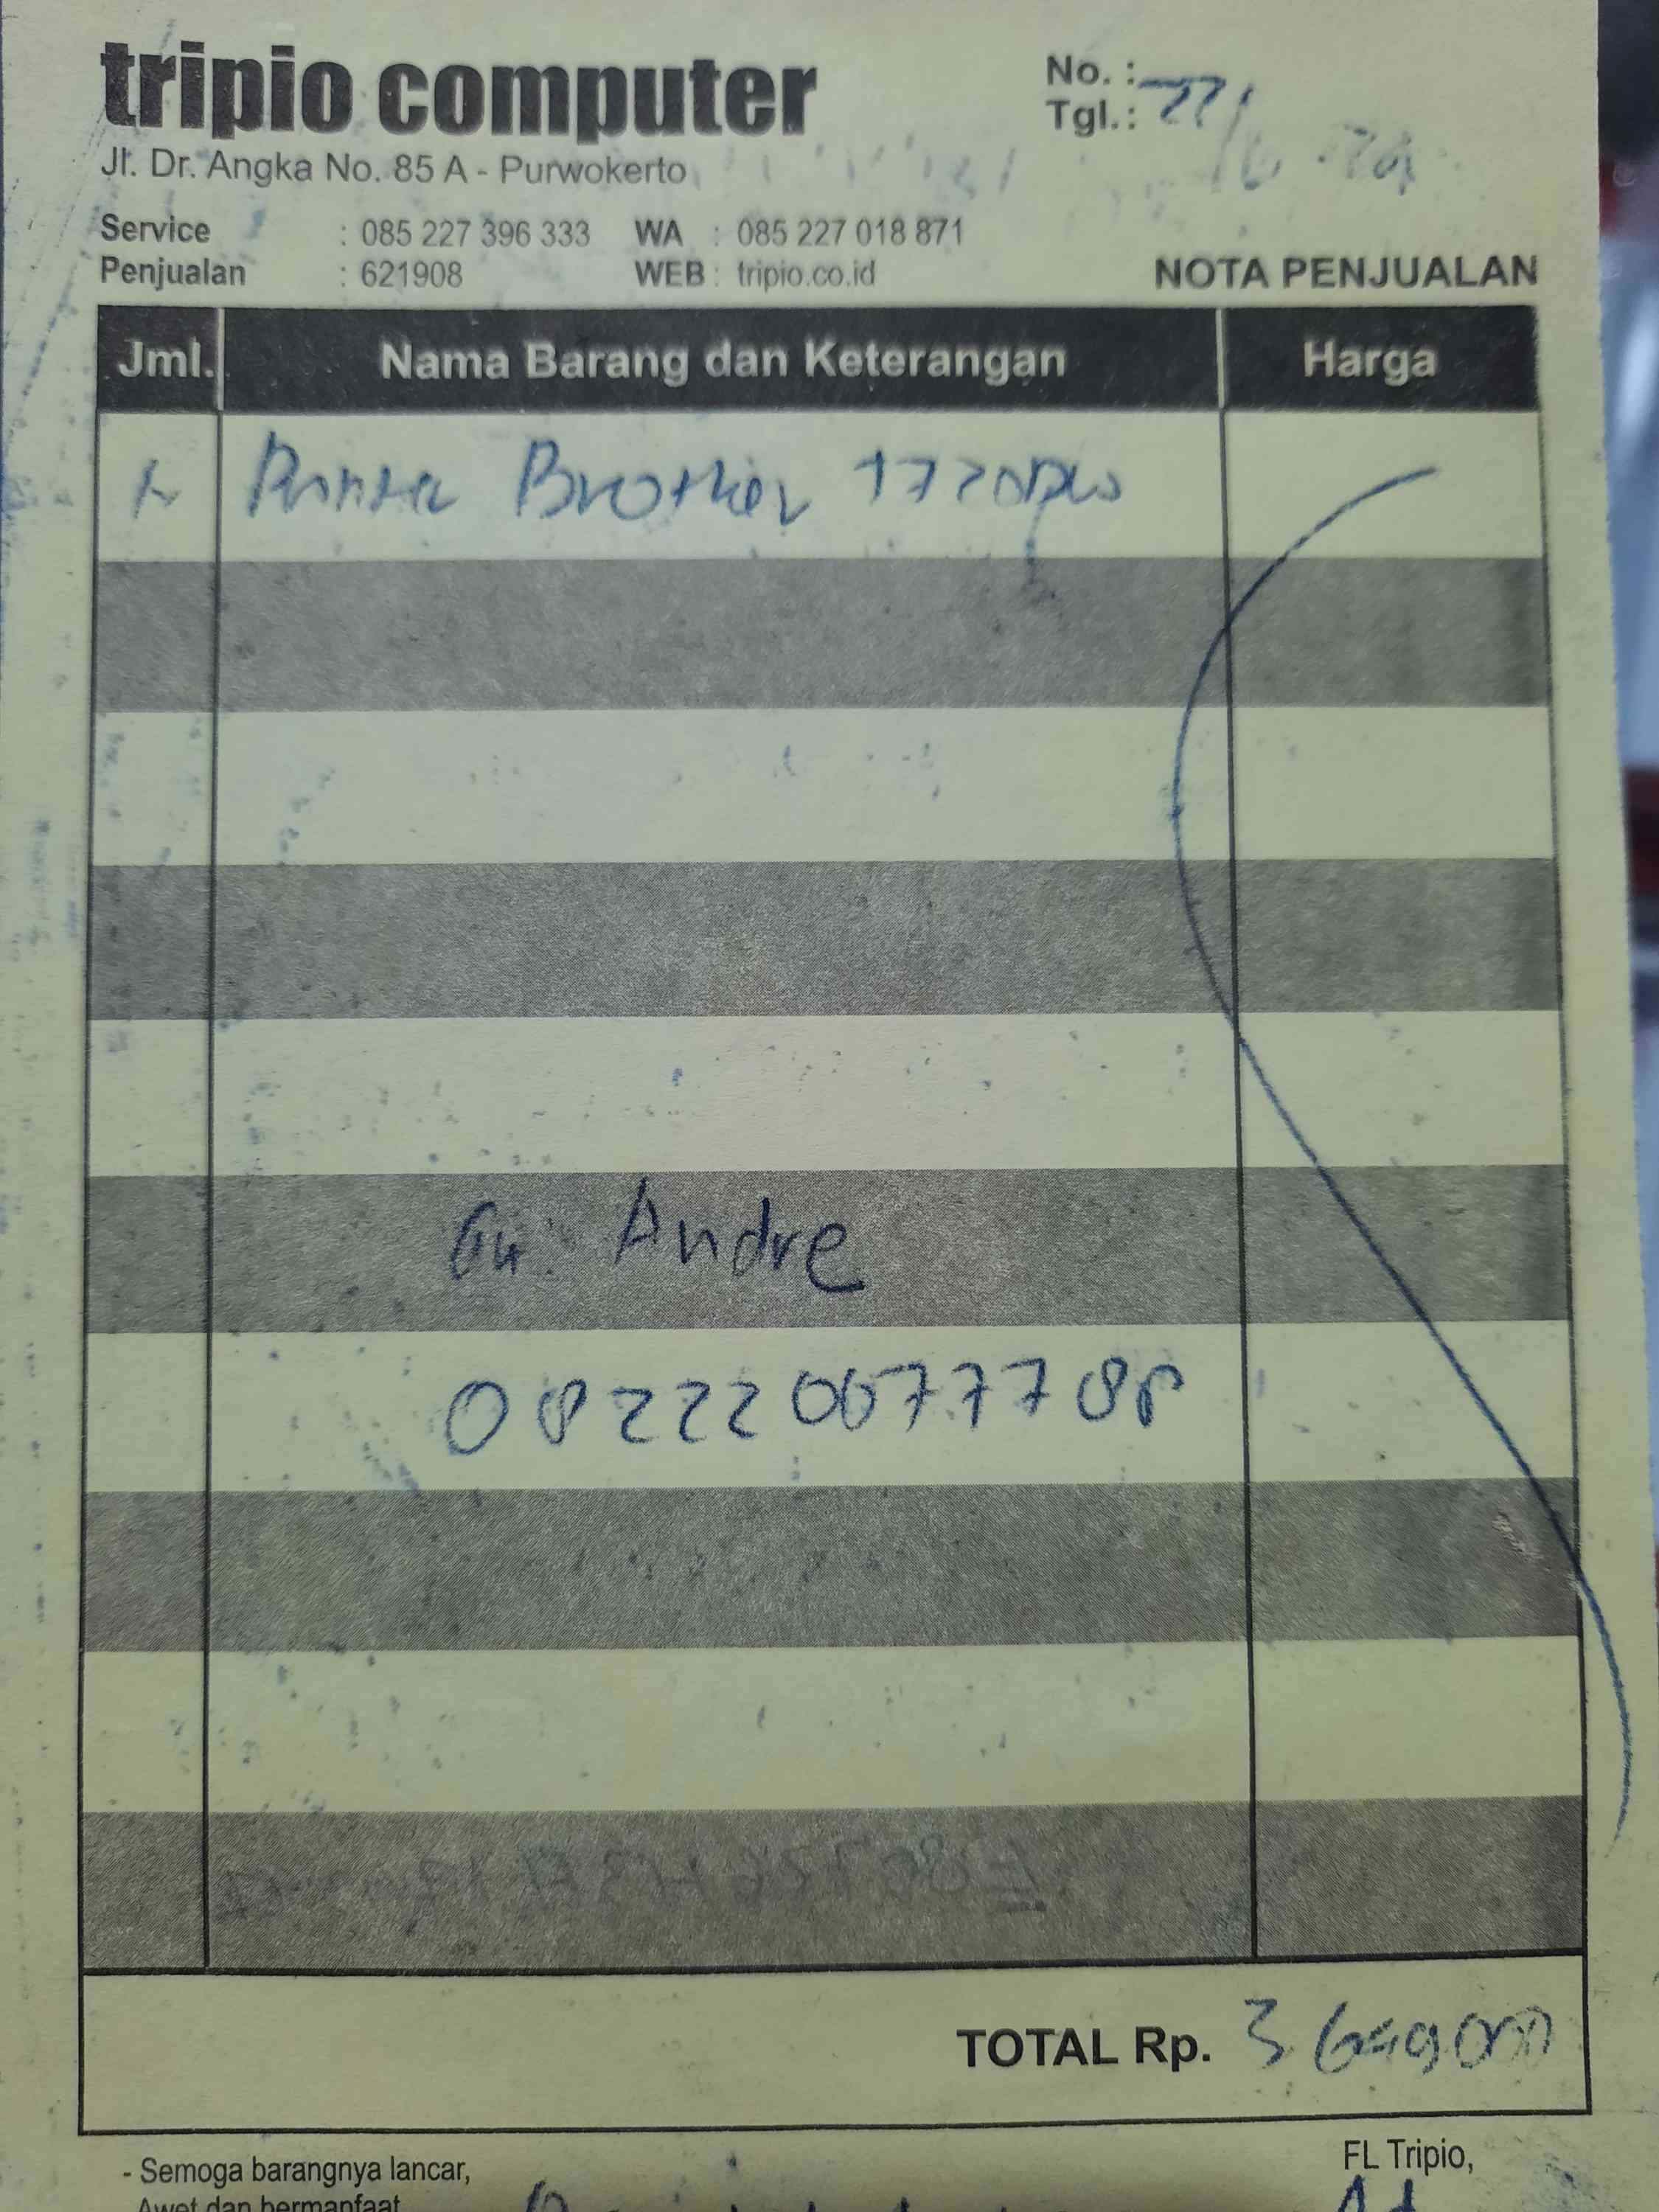 tripio computer
Jl. Dr. Angka No. 85 A - Purwokerto
No. :
Tgl. : 22/6-24
Service : 085 227 396 333 WA : 085 227 018 871
Penjualan : 621908 WEB : tripio.co.id
NOTA PENJUALAN
Jml. Nama Barang dan Keterangan Harga
1 Printer Brother T720DW
an. Andre
TOTAL Rp. 3.649.000
- Semoga barangnya lancar,
Awet dan bermanfaat
FL Tripio,